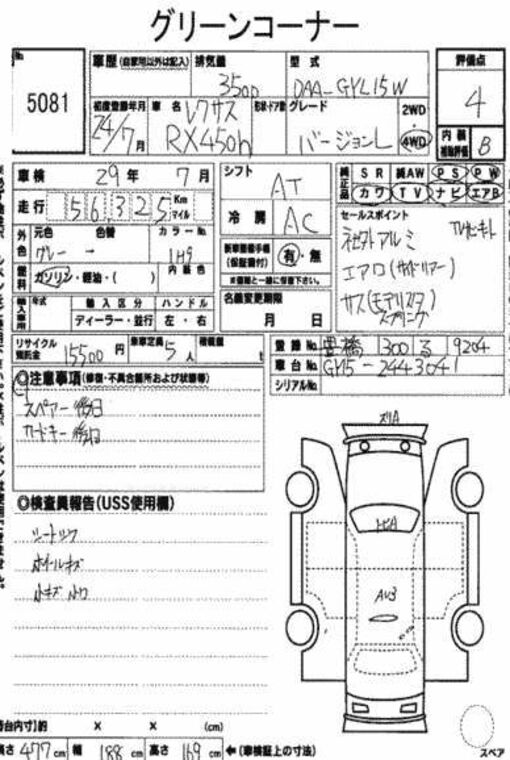 グリーンコーナー
No.
5081
車歴 (自家用以外は記入) 排気量 3500 型式 DAA-GYL15W
評価点 4
初度登録年月 24/7月 車名 レクサス RX450h 形状・ドア数 グレード バージョンL 2WD・4WD
内装補助評価 B
車検 29年 7月
シフト AT
純正品 SR 純AW PS PW
カワ TV ナビ エアB
走行 156,325 Km マイル
冷房 AC
セールスポイント
社外アルミ TVキット
エアロ(サイドリアー)
サス(モデリスタ)
スプリング
外色 元色 色替 カラーNo.
グレー → 1H9
燃料 ガソリン・軽油・( ) 内装色
新車整備手帳(保証書付) 有・無
※書類と一緒に保管下さい。
輸入車用 年式 輸入区分 ハンドル
ディーラー・並行 左・右
名義変更期限
月 日
リサイクル預託金 15500円 乗車定員 5人 積載量 t
登録No. 豊橋 300 る 9204
車台No. GYL15-2443041
シリアルNo.
◎注意事項(修復・不具合箇所および状態等)
スペアー後日
カードキー後日
◎検査員報告(USS使用欄)
シートスレ
ホイールキズ
小キズ 小凹
ズリA
トビA
AU3
スペア
[荷台内寸]約 × × (cm)
長さ 477cm 幅 188cm 高さ 169cm ←(車検証上の寸法)